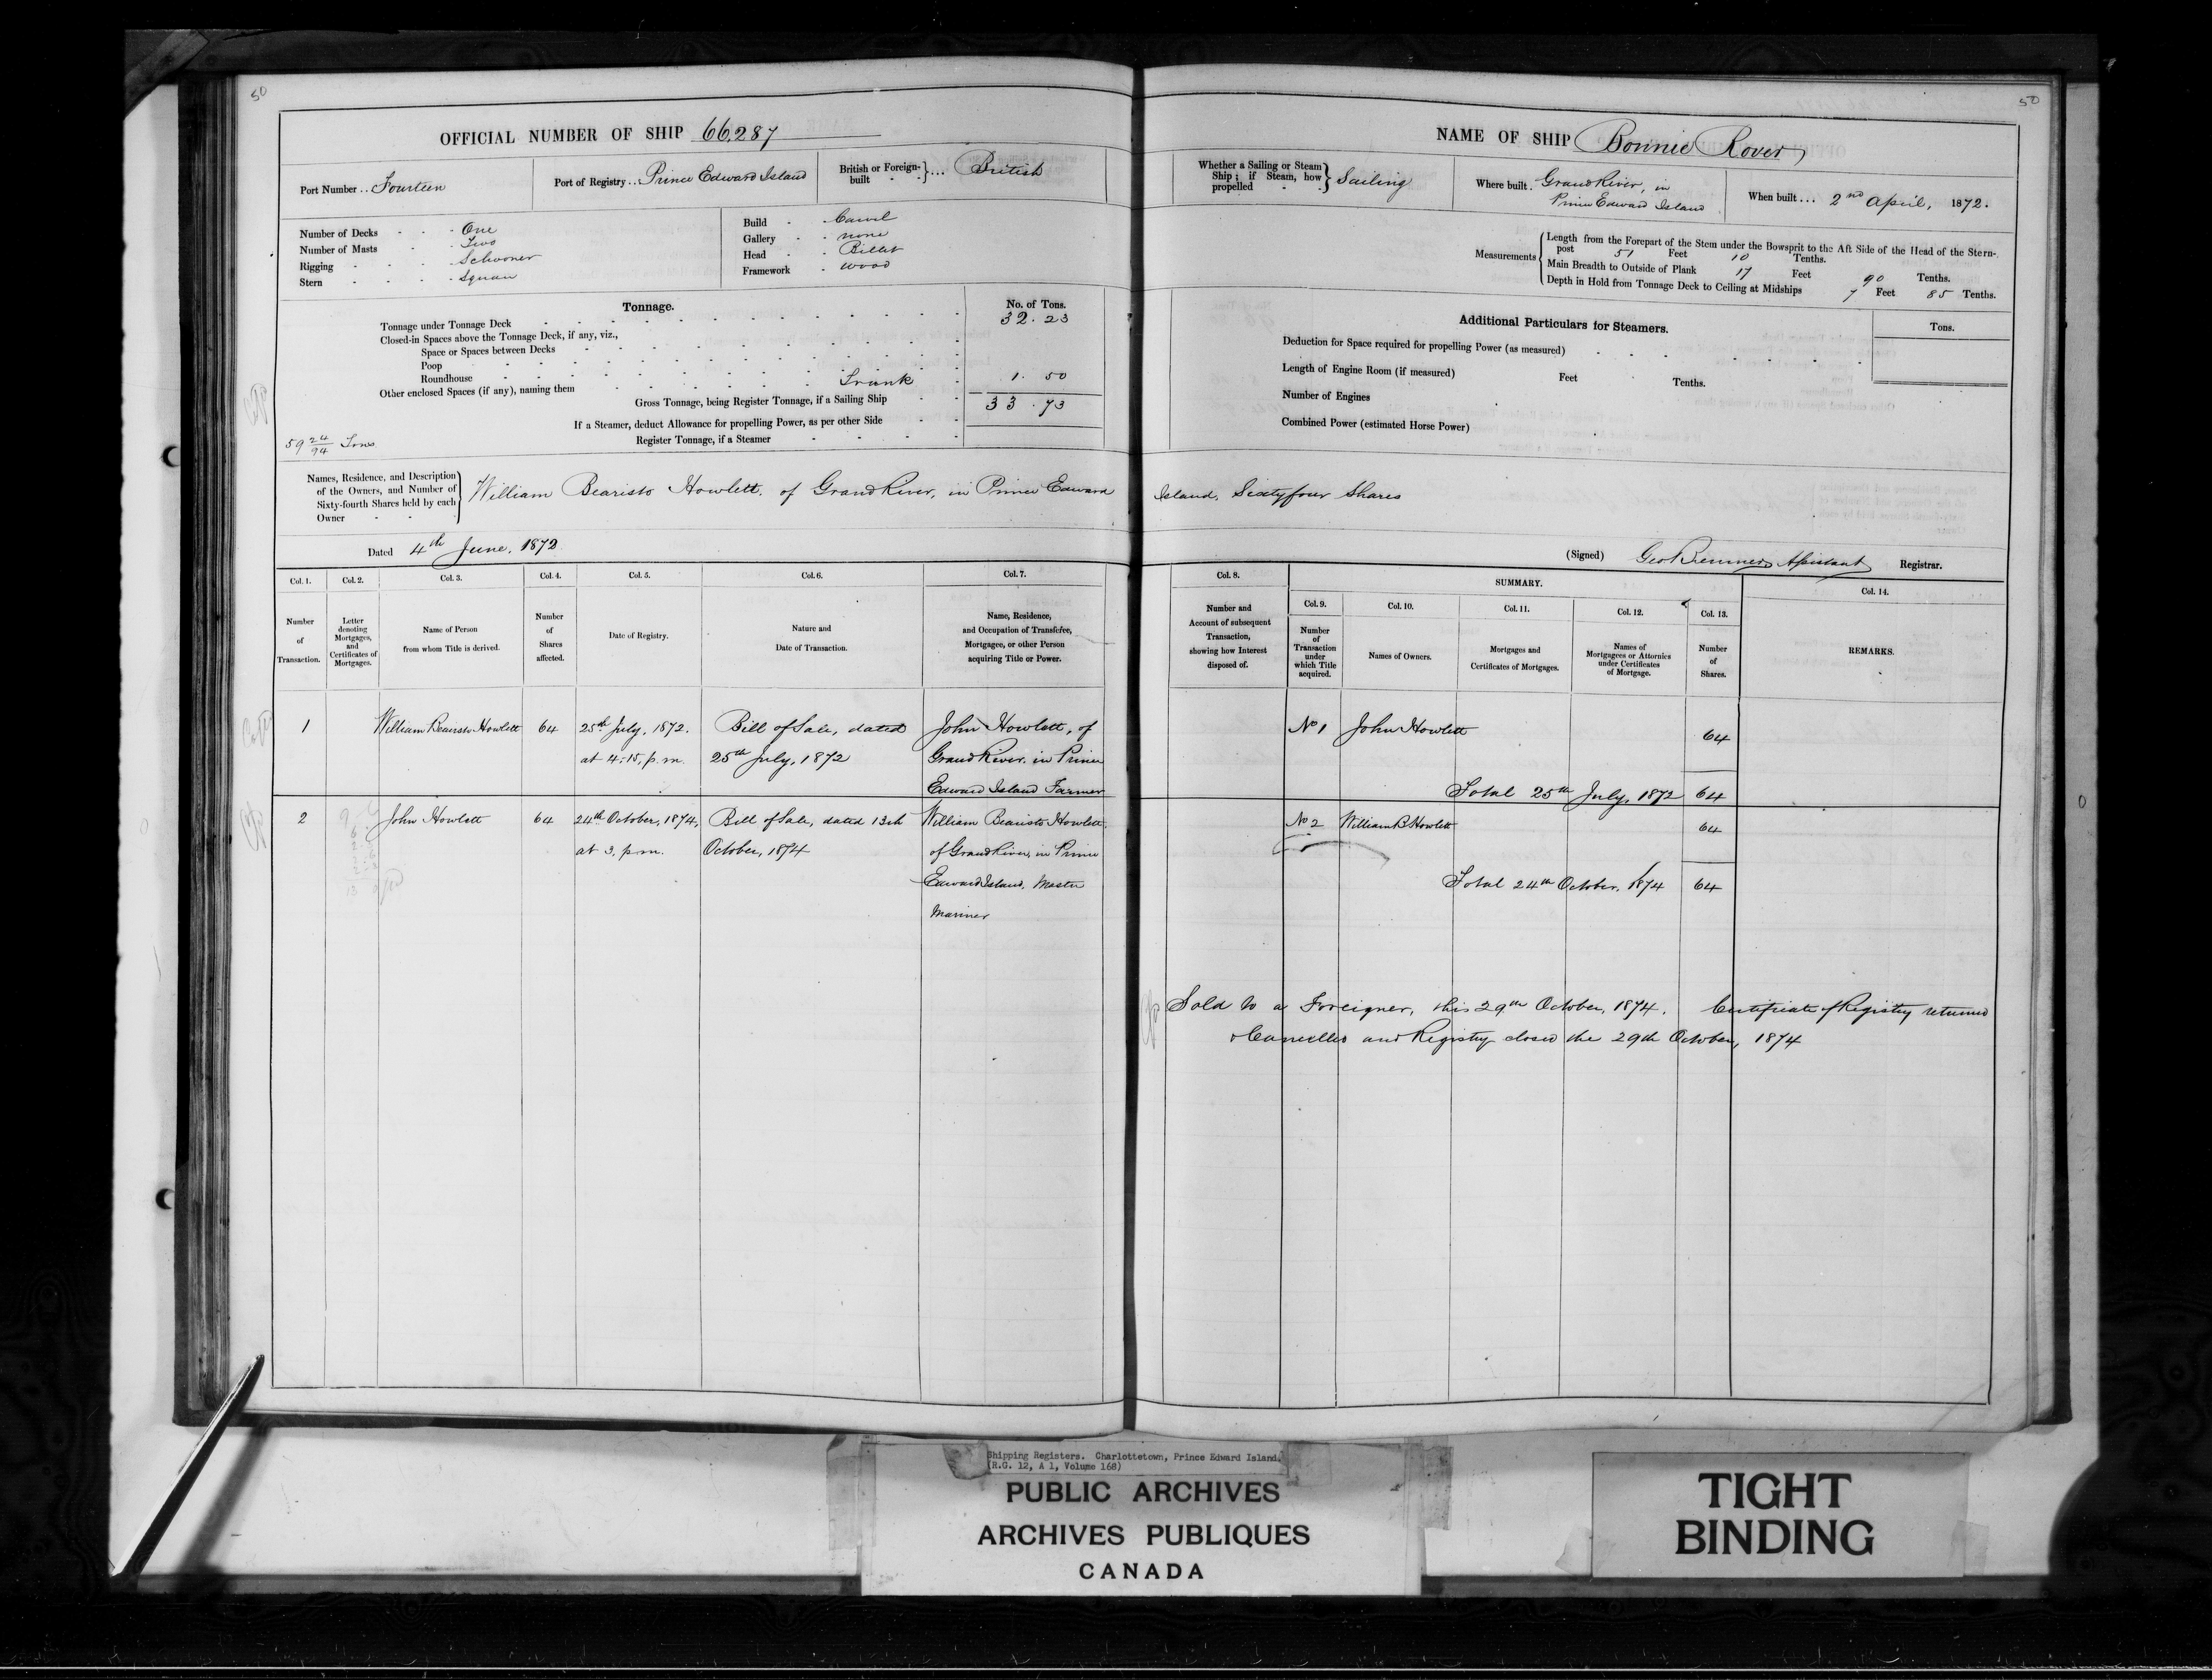 50
50
OFFICIAL NUMBER OF SHIP 66,287
Port Number .. Fourteen
Port of Registry .. Prince Edward Island
British or Foreign-built - - } ... British
Number of Decks - - - One
Number of Masts - - Two
Rigging - - - - Schooner
Stern - - - - Square
Build - - Carvel
Gallery - - none
Head - - Billet
Framework - wood
Tonnage.
No. of Tons.
Tonnage under Tonnage Deck 32.23
Closed-in Spaces above the Tonnage Deck, if any, viz.,
Space or Spaces between Decks
Poop
Roundhouse
Other enclosed Spaces (if any), naming them Trunk 1.50
Gross Tonnage, being Register Tonnage, if a Sailing Ship 33.73
If a Steamer, deduct Allowance for propelling Power, as per other Side
Register Tonnage, if a Steamer
59 24/94 Tons
NAME OF SHIP Bonnie Rover
Whether a Sailing or Steam Ship; if Steam, how propelled - - } Sailing
Where built . Grand River, in
Prince Edward Island
When built ... 2nd April, 1872.
Measurements
Length from the Forepart of the Stem under the Bowsprit to the Aft Side of the Head of the Stern-
post 51 Feet 10 Tenths.
Main Breadth to Outside of Plank 17 Feet 90 Tenths.
Depth in Hold from Tonnage Deck to Ceiling at Midships 7 Feet 85 Tenths.
Additional Particulars for Steamers.
Tons.
Deduction for Space required for propelling Power (as measured)
Length of Engine Room (if measured) Feet Tenths.
Number of Engines
Combined Power (estimated Horse Power)
Names, Residence, and Description
of the Owners, and Number of
Sixty-fourth Shares held by each
Owner - -
William Bearisto Howlett, of Grand River, in Prince Edward Island, Sixtyfour Shares
Dated 4th June, 1872
(Signed) Assistant Registrar.
Col. 1.
Number
of
Transaction.
Col. 2.
Letter
denoting
Mortgages,
and
Certificates of
Mortgages.
Col. 3.
Name of Person
from whom Title is derived.
Col. 4.
Number
of
Shares
affected.
Col. 5.
Date of Registry.
Col. 6.
Nature and
Date of Transaction.
Col. 7.
Name, Residence,
and Occupation of Transferee,
Mortgagee, or other Person
acquiring Title or Power.
Col. 8.
Number and
Account of subsequent
Transaction,
showing how Interest
disposed of.
SUMMARY.
Col. 9.
Number
of
Transaction
under
which Title
acquired.
Col. 10.
Names of Owners.
Col. 11.
Mortgages and
Certificates of Mortgages.
Col. 12.
Names of
Mortgagees or Attornies
under Certificates
of Mortgage.
Col. 13.
Number
of
Shares.
Col. 14.
REMARKS.
1
William Bearisto Howlett
64
25th July, 1872.
at 4.15, p.m.
Bill of Sale, dated
25th July, 1872
John Howlett, of
Grand River, in Prince
Edward Island Farmer
No 1 John Howlett 64
Total 25th July, 1872 64
2
John Howlett
64
24th October, 1874,
at 3, p.m.
Bill of Sale, dated 13th
October, 1874
William Bearisto Howlett,
of Grand River, in Prince
Edward Island, Master
Mariner
No 2 William B Howlett 64
Total 24th October, 1874 64
Sold to a Foreigner, this 29th October, 1874. Certificate of Registry returned
& Cancelled and Registry closed the 29th October, 1874
Shipping Registers. Charlottetown, Prince Edward Island.
(R.G. 12, A 1, Volume 168)
PUBLIC ARCHIVES
ARCHIVES PUBLIQUES
CANADA
TIGHT
BINDING